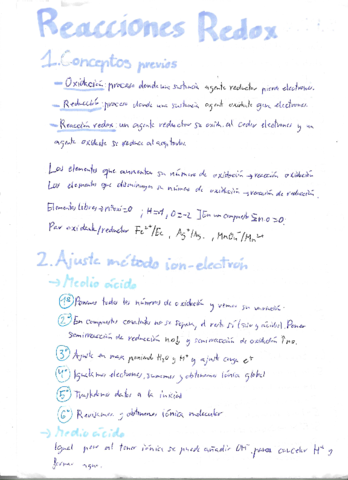 Reacciones Redox
1. Conceptos previos
- Oxidación: proceso donde una sustancia agente reductor pierde electrones.
- Reducción: proceso donde una sustancia agente oxidante gana electrones.
- Reacción redox: un agente reductor se oxida al ceder electrones y un
agente oxidante se reduce al captarlos
Los elementos que aumentan su número de oxidación → reacción oxidación
Los elementos que disminuyen su número de oxidación → reacción de reducción.
Elementos libres → =0 ; H=+1, O=-2 ] En un compuesto =0.
Par oxidante/reductor , Ag⁺/Ag, MnO₄⁻/Mn²⁺
2. Ajuste método ion-electrón
→ Medio ácido
1º Ponemos todos los números de oxidación y vemos su variación.
2º En compuestos covalentes no se separa, el resto sí (sales y ácidos). Poner
semirreacción de reducción y semirreacción de oxidación
3º Ajuste en masa poniendo H₂O y H⁺ y ajuste carga e⁻
4º Igualamos electrones, sumamos y obtenemos iónica global
5º datos a la inicial
6º Revisamos y obtenemos iónica molecular
→ Medio ácido
Igual pero al tener iónica se puede añadir OH⁻ para cancelar H⁺ y
formar agua.